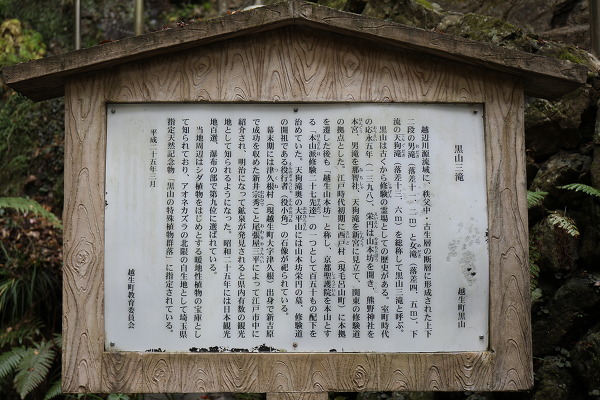 黒山三滝
越生町黒山
越辺川源流域に、秩父中・古生層の断層に形成された上下
二段の男滝(落差十一・二m)と女滝(落差四・五m)、下
流の天狗滝(落差十三・六m)を総称して黒山三滝と呼ぶ。
黒山は古くから修験の霊場としての歴史がある。室町時代
の応永五年(一三九八)、栄円は山本坊を開き、熊野神社を
本宮、男滝を那智社、天狗滝を新宮に見立て、関東の修験道
の拠点とした。江戸時代初期に西戸村(現毛呂山町)に本拠
を遷した後も「越生山本坊」と称し、京都聖護院を本山とす
る「本山派修験二十七先達」の一つとして百五十もの配下を
治めていた。天狗滝奥の大平山には山本坊栄円の墓、修験道
の開祖である役行者(役小角)の石像が祀られている。
幕末期には津久根村(現越生町大字津久根)出身で新吉原
で成功を収めた新井秀こと尾張屋三平によって江戸市中に
紹介され、明治になって鉱泉が発見されると県内有数の観光
地として知られるようになった。昭和二十五年には日本観光
地百選、瀑布の部で第九位に選ばれている。
当地周辺はシダ植物をはじめとする暖地性植物の宝庫とし
て知られており、アオネカズラの北限の自生地として埼玉県
指定天然記念物「黒山の特殊植物群落」に指定されている。
平成二十五年三月
越生町教育委員会